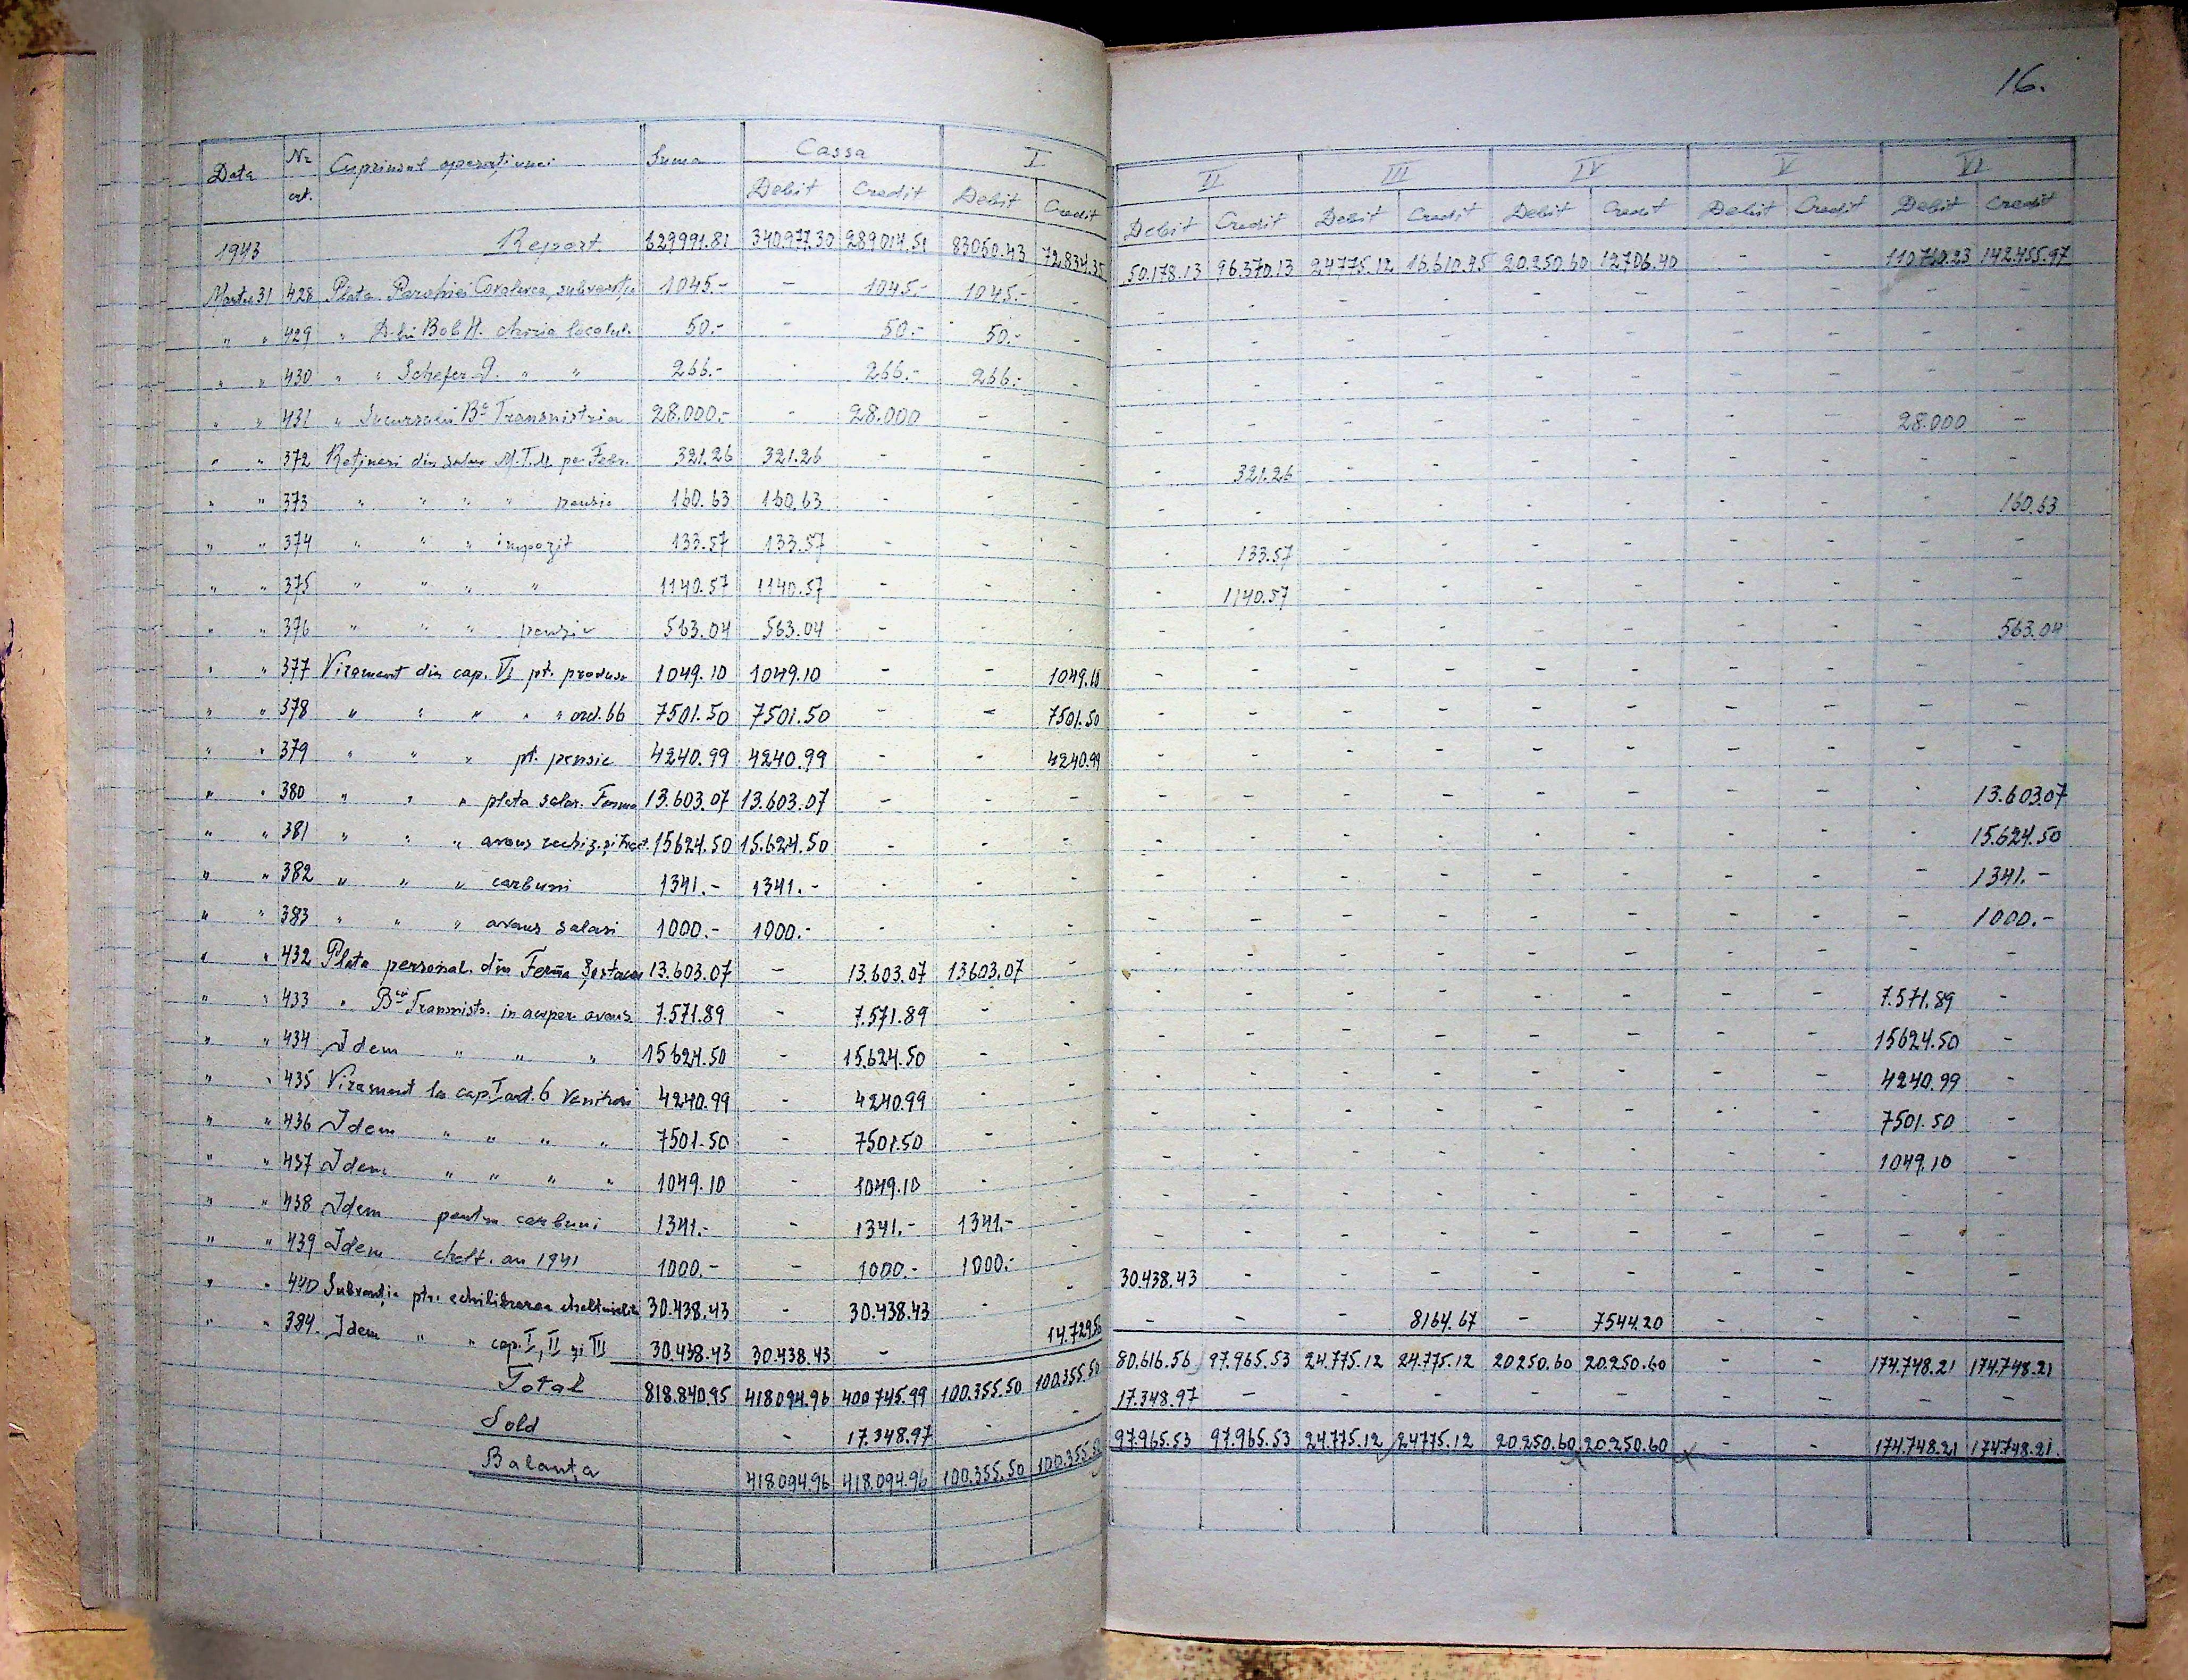 16.
Data Nr. crt. Cuprinsul operațiunei Suma Cassa I II III IV V VI
Debit Credit Debit Credit Debit Credit Debit Credit Debit Credit Debit Credit Debit Credit
1943 Report 629991.81 340977.30 289014.51 83050.43 72.834.35 50.178.13 96.370.13 24775.12 16.610.45 20.250.60 12706.40 - - 110760.23 142.455.97
Martie 31 428 Plata Parohiei Covalevca, subvenție 1045.- - 1045.- 1045.- - - - - - - - - - - -
" " 429 " D-lui Bob H. chiria localul. 50.- - 50.- 50.- - - - - - - - - - - -
" " 430 " " Schefer D. " " 266.- - 266.- 266.- - - - - - - - - - - -
" " 431 " Sucursalei Bc Transnistria 28.000.- - 28.000 - - - - - - - - - - 28.000 -
" " 372 Rețineri din salar M.T.M. pe Febr. 321.26 321.26 - - - - 321.26 - - - - - - - -
" " 373 " " " " pensie 160.63 160.63 - - - - - - - - - - - - 160.63
" " 374 " " " impozit 133.57 133.57 - - - - 133.57 - - - - - - - -
" " 375 " " " " 1140.57 1140.57 - - - - 1140.57 - - - - - - - -
" " 376 " " " pensie 563.04 563.04 - - - - - - - - - - - - 563.04
" " 377 Virament din cap. VI pt. produse 1049.10 1049.10 - - 1049.10 - - - - - - - - - -
" " 378 " " " " " ord. 66 7501.50 7501.50 - - 7501.50 - - - - - - - - - -
" " 379 " " " pt. pensie 4240.99 4240.99 - - 4240.99 - - - - - - - - - -
" " 380 " " " plata salar. Ferma 13.603.07 13.603.07 - - - - - - - - - - - - 13.603.07
" " 381 " " " avans rechiz. 15624.50 15.624.50 - - - - - - - - - - - - 15.624.50
" " 382 " " " carbuni 1341.- 1341.- - - - - - - - - - - - - 1341.-
" " 383 " " " avans salarii 1000.- 1000.- - - - - - - - - - - - - 1000.-
" " 432 Plata personal. din Ferma 13.603.07 - 13.603.07 13603.07 - - - - - - - - - - -
" " 433 " Bcii Transnistr. in acoper. avans 7.571.89 - 7.571.89 - - - - - - - - - - 7.571.89 -
" " 434 Idem " " " 15624.50 - 15.624.50 - - - - - - - - - - 15624.50 -
" " 435 Virament la cap. I art. 6 Venituri 4240.99 - 4240.99 - - - - - - - - - - 4240.99 -
" " 436 Idem " " " " 7501.50 - 7501.50 - - - - - - - - - - 7501.50 -
" " 437 Idem " " " " 1049.10 - 1049.10 - - - - - - - - - - 1049.10 -
" " 438 Idem pentru carbuni 1341.- - 1341.- 1341.- - - - - - - - - - - -
" " 439 Idem chelt. an 1941 1000.- - 1000.- 1000.- - - - - - - - - - - -
" " 440 Subvenție ptr. echilibrarea cheltuielilor 30.438.43 - 30.438.43 - - 30.438.43 - - - - - - - - -
" " 384. Idem " " cap. I, II și III 30.438.43 30.438.43 - 14.729.56 - - - 8164.67 - 7544.20 - - - -
Total 818.840.95 418094.96 400745.99 100.355.50 100.355.50 80.616.56 97.965.53 24.775.12 24.775.12 20250.60 20.250.60 - - 174.748.21 174.748.21
Sold - 17.348.97 - - 17.348.97 - - - - - - - - -
Balanța 418094.96 418.094.96 100.355.50 100.355.50 97.965.53 97.965.53 24.775.12 24775.12 20.250.60 20.250.60 - - 174.748.21 174748.21.